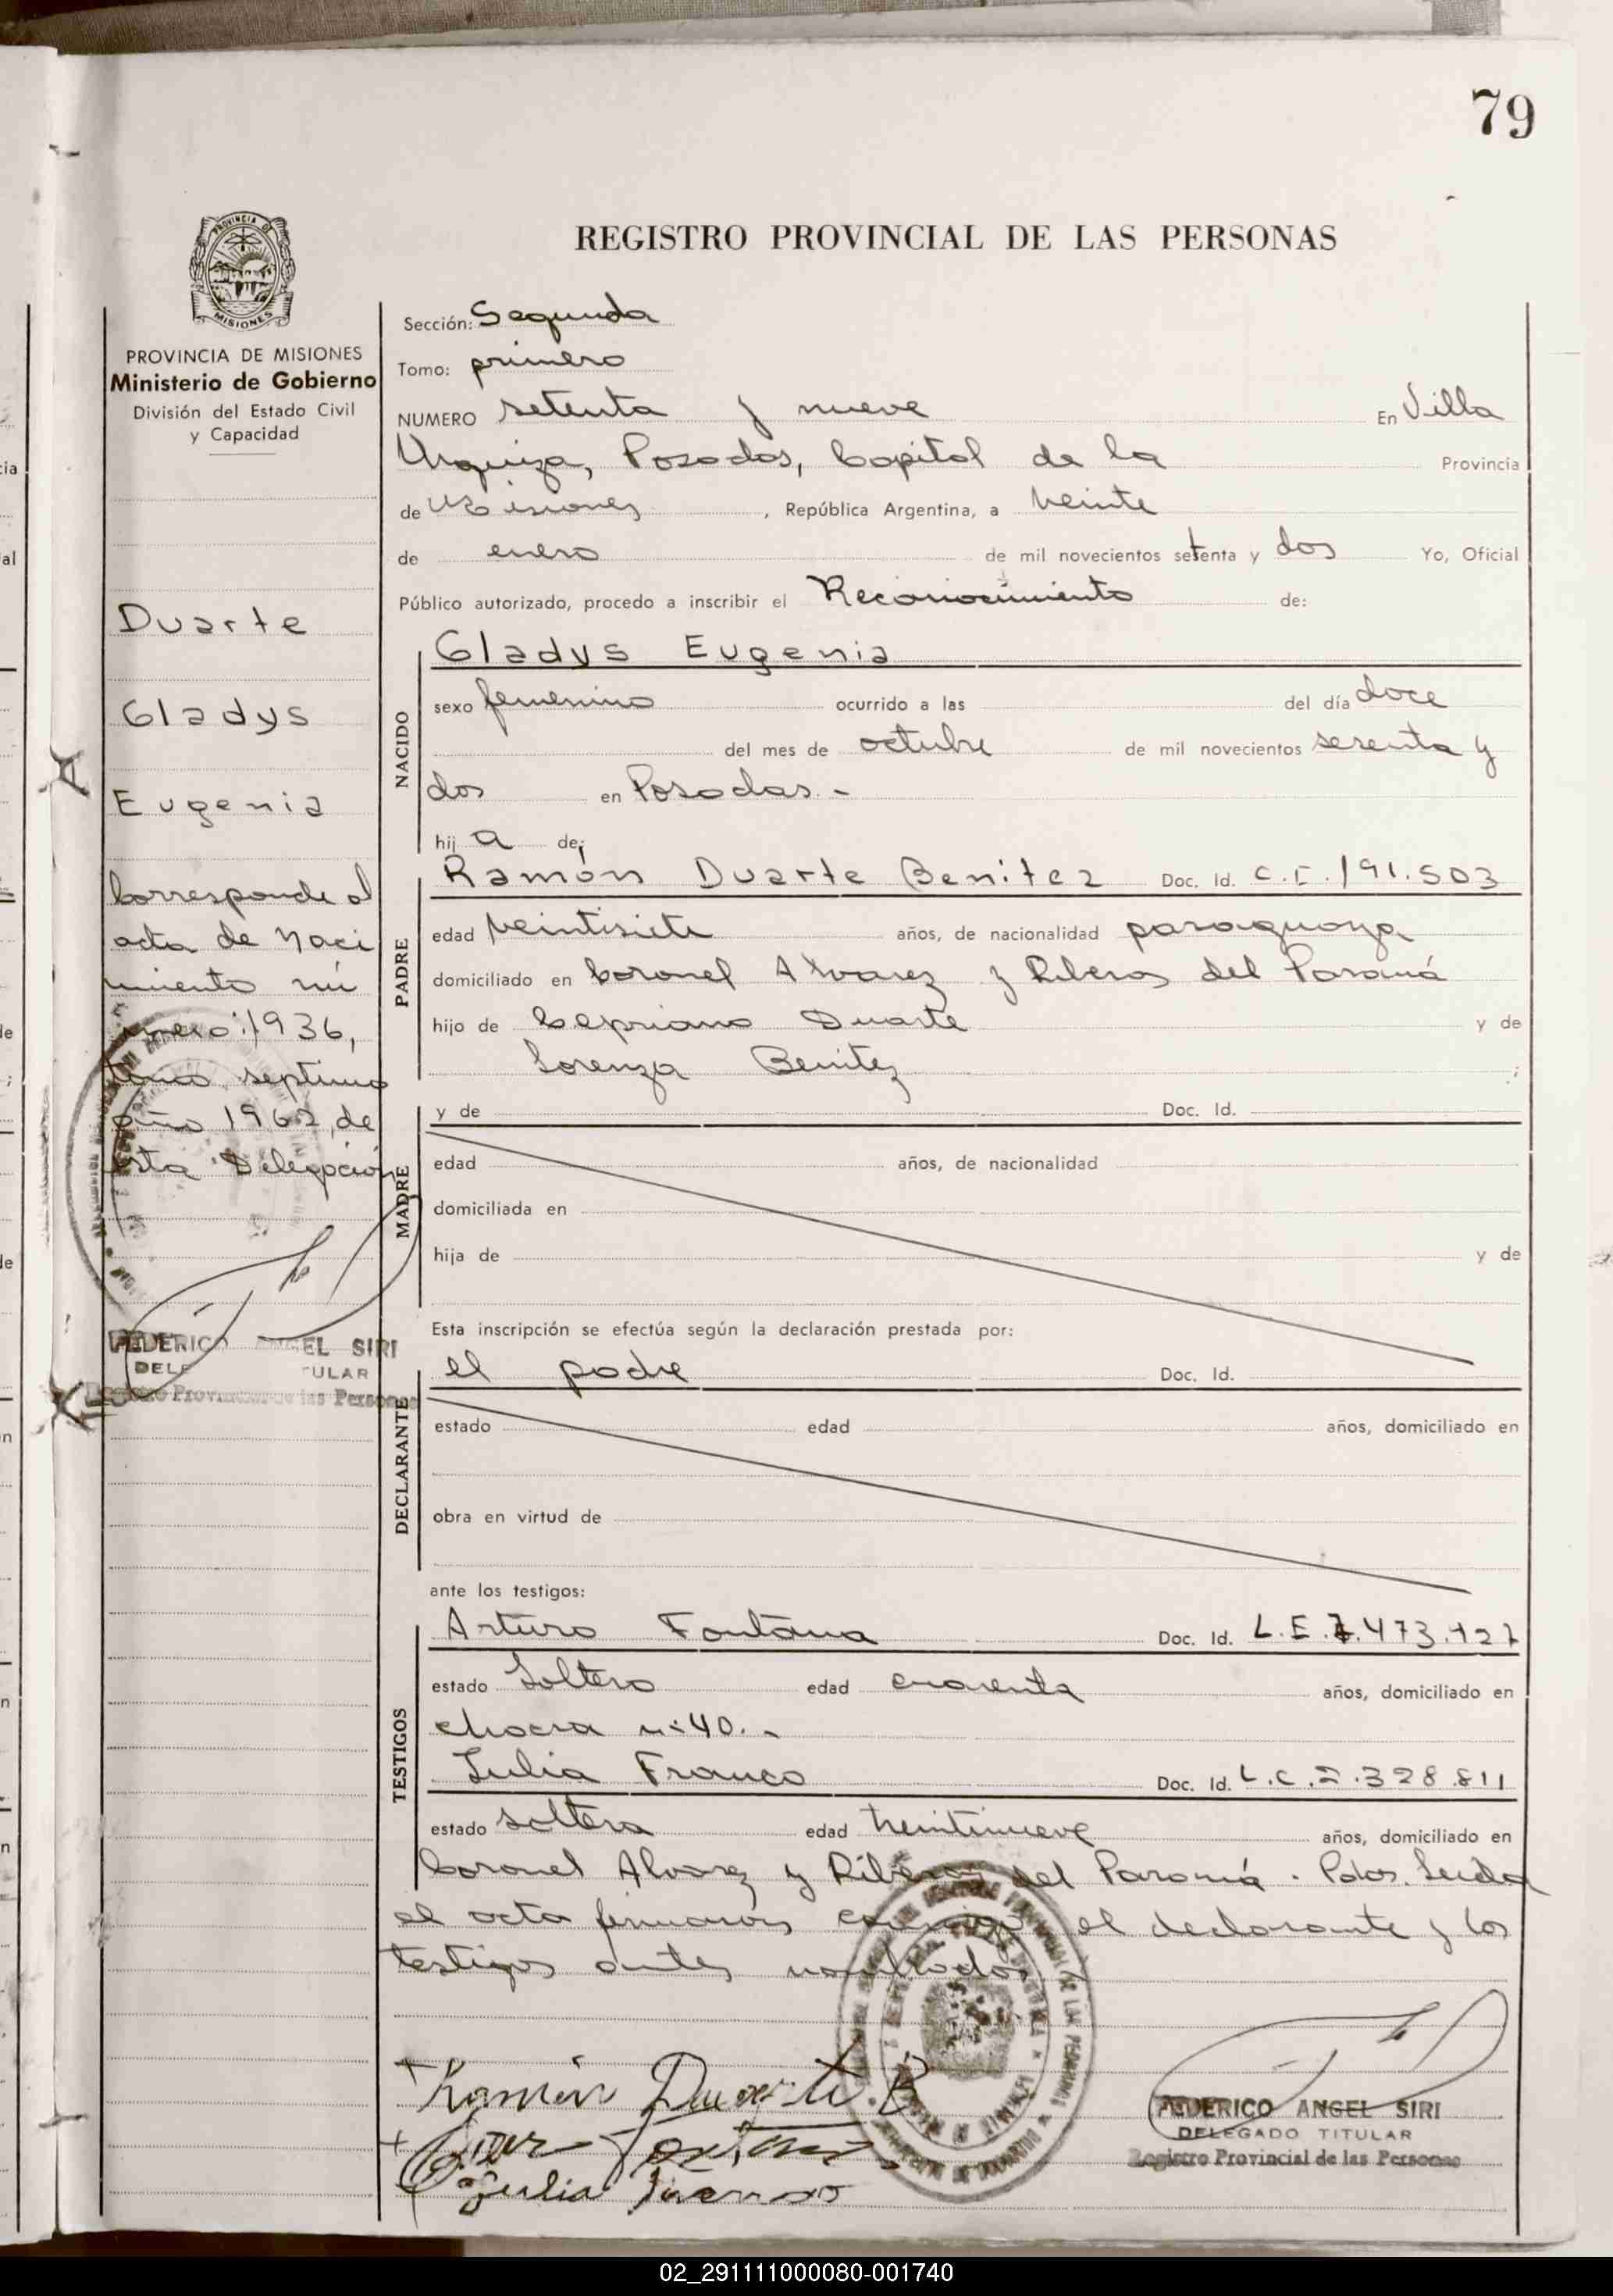 79
REGISTRO PROVINCIAL DE LAS PERSONAS
PROVINCIA DE
MISIONES
PROVINCIA DE MISIONES
Ministerio de Gobierno
División del Estado Civil
y Capacidad
Duarte
Gladys
Eugenia
Corresponde al
acta de naci
miento nú
mero: 1936,
tomo septimo
año 1962, de
esta Delegación
FEDERICO ANGEL SIRI
DELE TULAR
Registro Provincial de las Personas
Sección: Segunda
Tomo: primero
NUMERO setenta y nueve En Villa
Urquiza, Posadas, Capital de la Provincia
de Misiones, República Argentina, a veinte
de enero de mil novecientos setenta y dos Yo, Oficial
Público autorizado, procedo a inscribir el Reconocimiento de:
NACIDO
Gladys Eugenia
sexo femenino ocurrido a las del día doce
del mes de octubre de mil novecientos sesenta y
dos en Posadas.-
hij a de;
PADRE
Ramón Duarte Benitez Doc. Id. C.I. 191.503
edad veintisiete años, de nacionalidad paraguaya
domiciliado en Coronel Alvarez y Riberas del Paraná
hijo de Cepriano Duarte y de
Lorenza Benitez ;
MADRE
y de Doc. Id.
edad años, de nacionalidad
domiciliada en
hija de y de
Esta inscripción se efectúa según la declaración prestada por:
DECLARANTE
el padre Doc. Id.
estado edad años, domiciliado en
obra en virtud de
ante los testigos:
TESTIGOS
Arturo Fontana Doc. Id. L.E. 7.473.127
estado Soltero edad cuarenta años, domiciliado en
chacra nº 40.-
Julia Franco Doc. Id. L.C. 2.328.811
estado soltera edad treintinueve años, domiciliado en
Coronel Alvarez y Riberas del Paraná. Pdas. Leida
el acta firmaron conmigo el declarante y los
testigos antes nombrados
Ramón Duarte. B
Julia Franco
FEDERICO ANGEL SIRI
DELEGADO TITULAR
Registro Provincial de las Personas
02_291111000080-001740